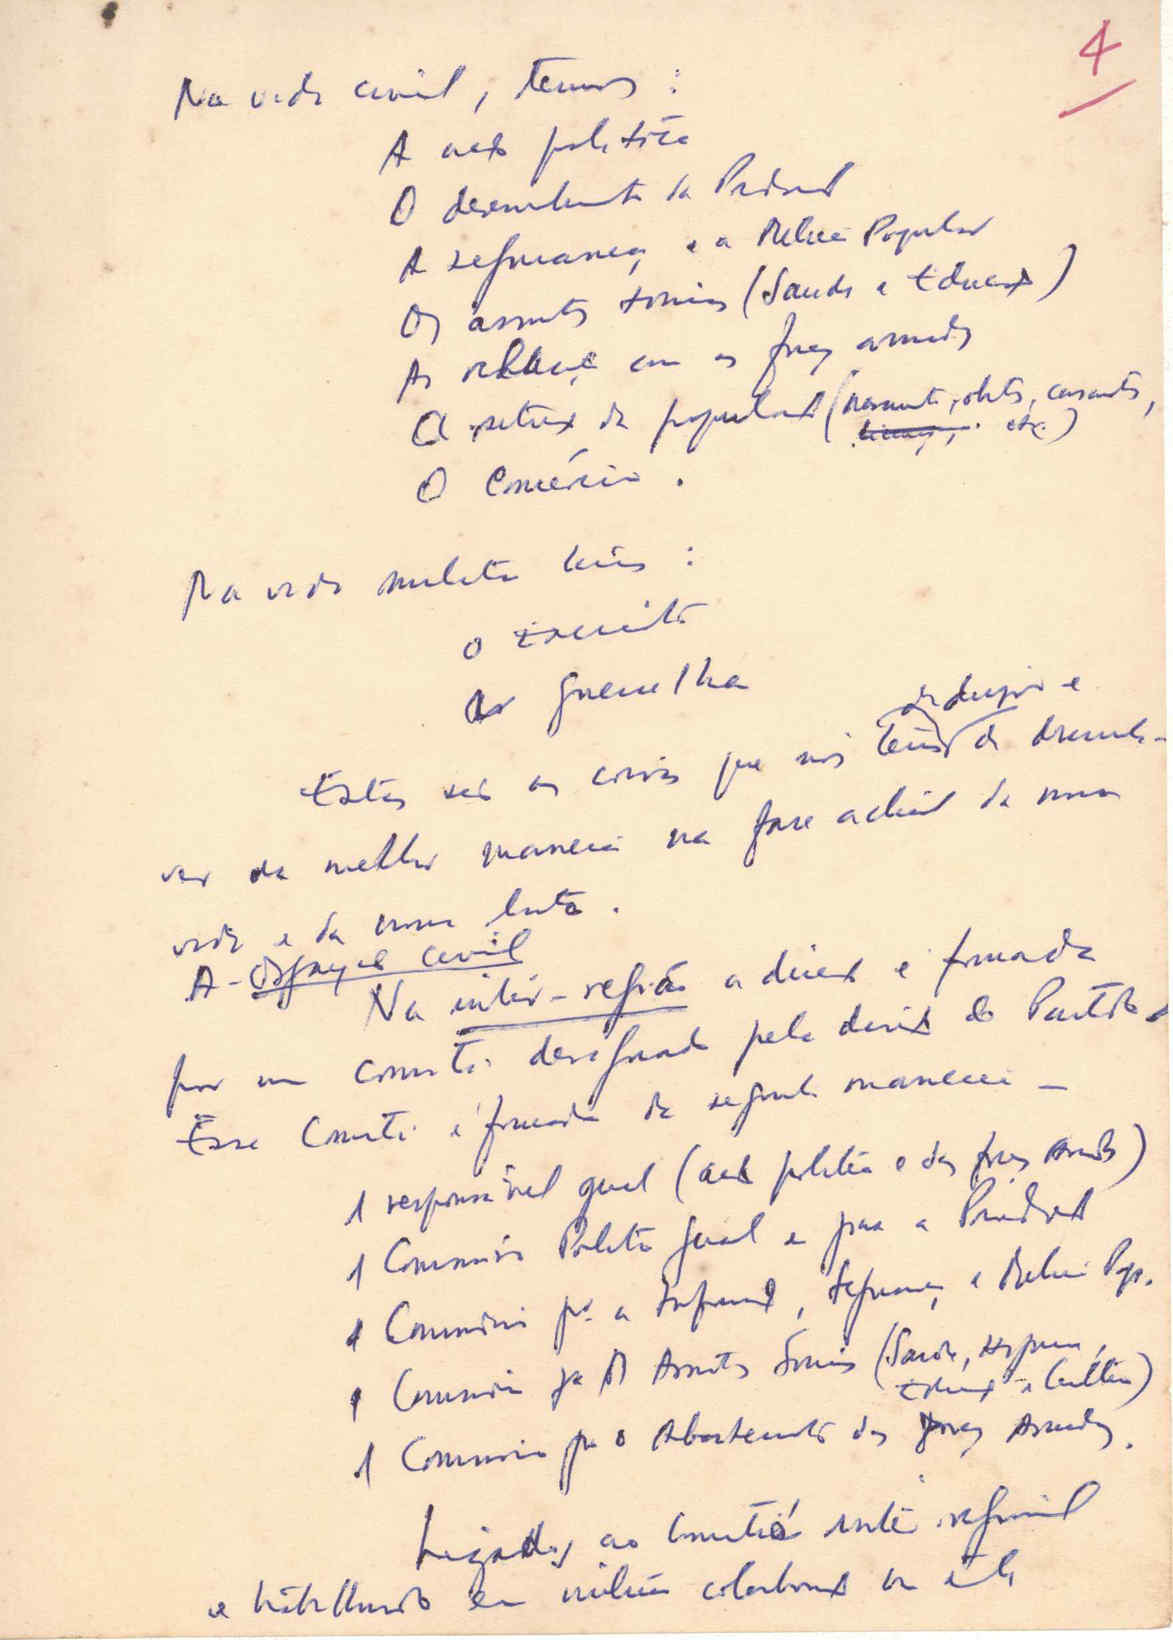 4
Na vida civil, temos:
A acção política
O desenvolvimento da Produção
A segurança e a Milícia Popular
Os assuntos sociais (Saúde e Educação)
As relações com as forças armadas
O da população (nascimentos, óbitos, casamentos,
etc.)
O Comércio.
Na vida militar temos:
O Exército
A guerrilha
de dirigir e
Estas são as coisas que nós temos de desenvol-
ver da melhor maneira na fase actual da nossa
vida e da nossa luta.
A - civil
Na inter-região a direcção é formada
por um comité designado pela direcção do Partido
Esse Comité é formado da seguinte maneira —
1 responsável geral (acção política e das forças armadas)
1 Comissário Político geral e para a Produção
1 Comissário pª a Informação, Segurança e Milícia Pop.
1 Comissário pª os Assuntos Sociais (Saúde,
Educação e Cultura)
1 Comissário pª o Abastecimento das Forças Armadas.
Ligados ao Comité inter-regional
e trabalhando em íntima colaboração com ele